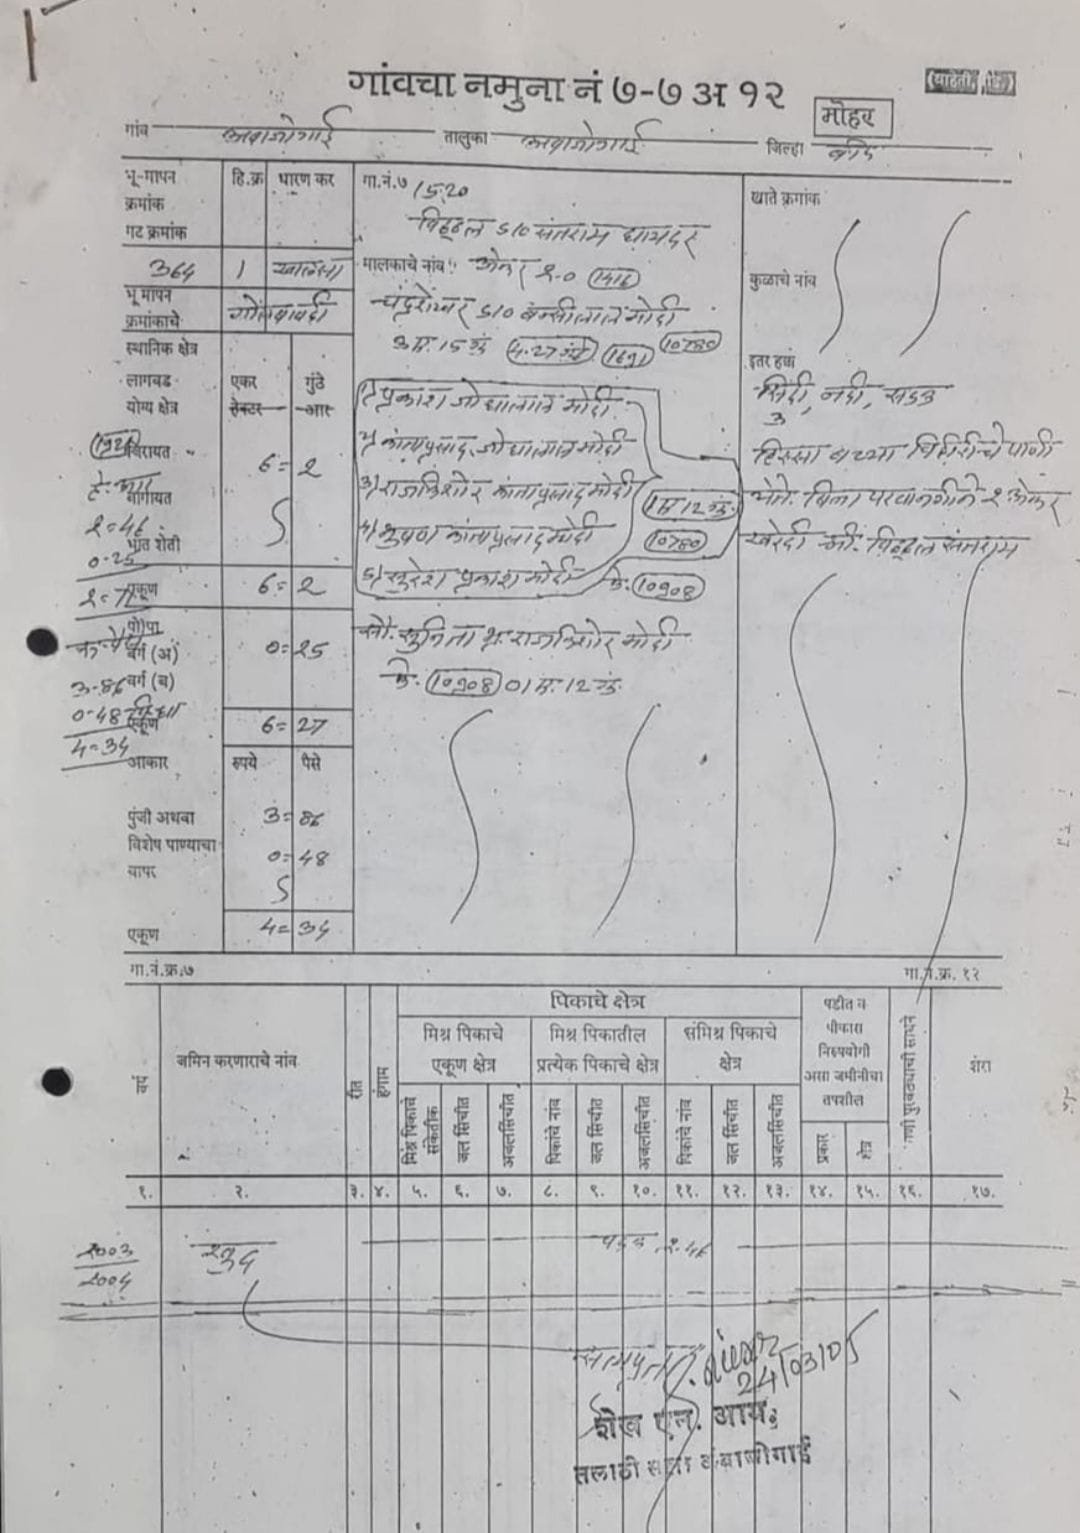 गांवचा नमुना नं ७-७ अ १२
मोहर
गांव अंबाजोगाई तालुका अंबाजोगाई जिल्हा बीड
भू-मापन क्रमांक गट क्रमांक
हि.क्र
धारण कर
गा.नं.७ 15.20
खाते क्रमांक
विठ्ठल S/O संतराम
364 1 खालसा
मालकाचे नांव :: एकर २.० (1416)
कुळाचे नांव
भू मापन क्रमांकाचे
चंद्रशेखर S/O बन्सीलाल मोदी
3 ए. 15 गुं (4.27 गुंठे) (1691) (10780)
स्थानिक क्षेत्र
इतर हक्क
लागवड योग्य क्षेत्र
एकर गुंठे
हेक्टर आर
1) प्रकाश मोदी
नदी, सडक
3
2) कांताप्रसाद मोदी
जिरायत
6=2
हिस्सा विहिरीचे पाणी
बागायत
3) राजकिशोर कांताप्रसाद मोदी
1 ए 12 गुं.
घेते. बिना परवानगीने २ एकर
२=46
4) भुषण कांताप्रसाद मोदी
(10780)
खरेदी श्री. विठ्ठल संतराम
भात शेती
0-25
5) सुरेश प्रकाश मोदी फे. (10908)
एकूण 6=2
२=71
पो/पा
वर्ग (अ)
0=25
सौ. सुनिता भ्र. राजकिशोर मोदी
फे. (10908) 01 ए. 12 गुं.
वर्ग (ब)
3-86
0-48
एकूण 6=27
4=34
आकार रुपये पैसे
पुंजी अथवा 3=86
विशेष पाण्याचा वापर 0=48
एकूण 4=34
गा.नं.क्र.७
गा.नं.क्र. १२
पिकाचे क्षेत्र
वर्ष
जमिन करणाराचे नांव
रीत
हंगाम
मिश्र पिकाचे एकूण क्षेत्र
मिश्र पिकातील प्रत्येक पिकाचे क्षेत्र
संमिश्र पिकाचे क्षेत्र
पडीत व पीकास निरुपयोगी असा जमीनीचा तपशील
पाणी पुरवठ्याची साधने
शेरा
मिश्र पिकाचे संकेतीक
जल सिंचीत
अजलसिंचीत
पिकांचे नांव
जल सिंचीत
अजलसिंचीत
पिकांचे नांव
जल सिंचीत
अजलसिंचीत
प्रकार
क्षेत्र
१. २. ३. ४. ५. ६. ७. ८. ९. १०. ११. १२. १३. १४. १५. १६. १७.
2003
2004
खुद पडक २.46
सत्यप्रत
24/03/05
शेख एन. आय.
तलाठी सजा अंबाजोगाई